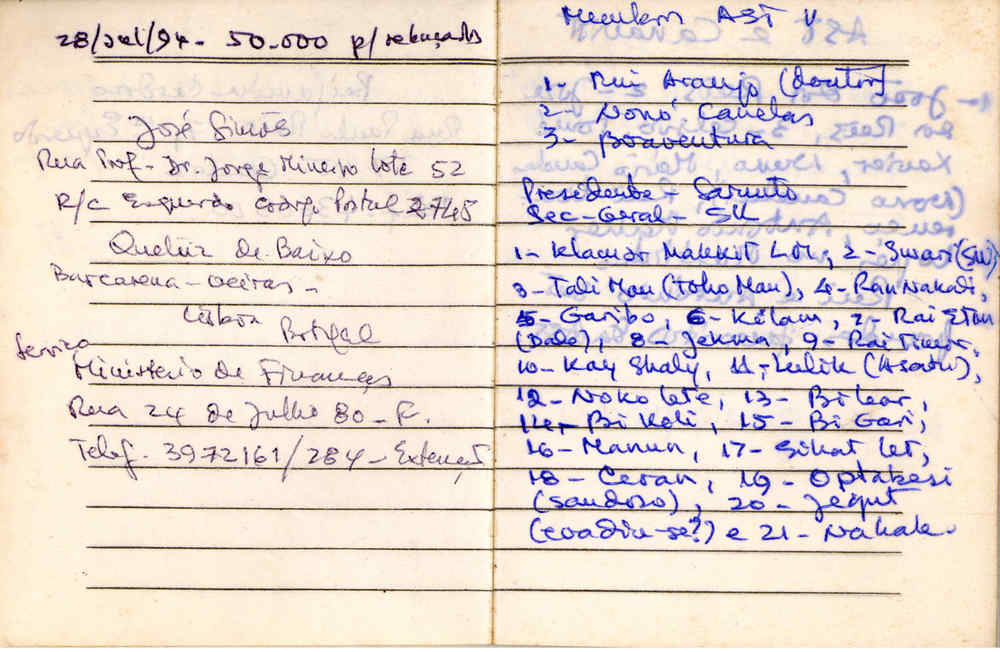 28/Jul/94 - 50.000 p/ rebuçados
José Simões
Rua Prof. Dr. Jorge Mineiro Lote 52
R/c Esquerdo Código Postal 2745
Queluz de Baixo
Barcarena - Oeiras -
Lisboa
Portugal
Serviço
Ministério de Finanças
Rua 24 de Julho 80 - F.
Telef. 3972161/284 - Extensão
AST V
1- Rui Araujo (doutor)
2- Nonó Canelas
3- Boaventura
Presidente - Sarmento
Sec-Geral - SK
1- Klamar Makkit Lol, 2- Swari (SW)
3- Tali Man (Toho Man), 4- Ran Nakali,
5- Garibo, 6- Kelam, 7- Rai Etan
(Dade), 8- Jekma, 9- Rai Timor,
10- Kay Shaly, 11- Lulik (Asatu),
12- Noko lete, 13- Bi lear,
14- Bi Keli, 15- Bi Gari,
16- Manun, 17- Sikat let,
18- Ceran, 19- Optakesi
(Sandoso), 20- Jequt
(evadiu-se?) e 21- Nahale.